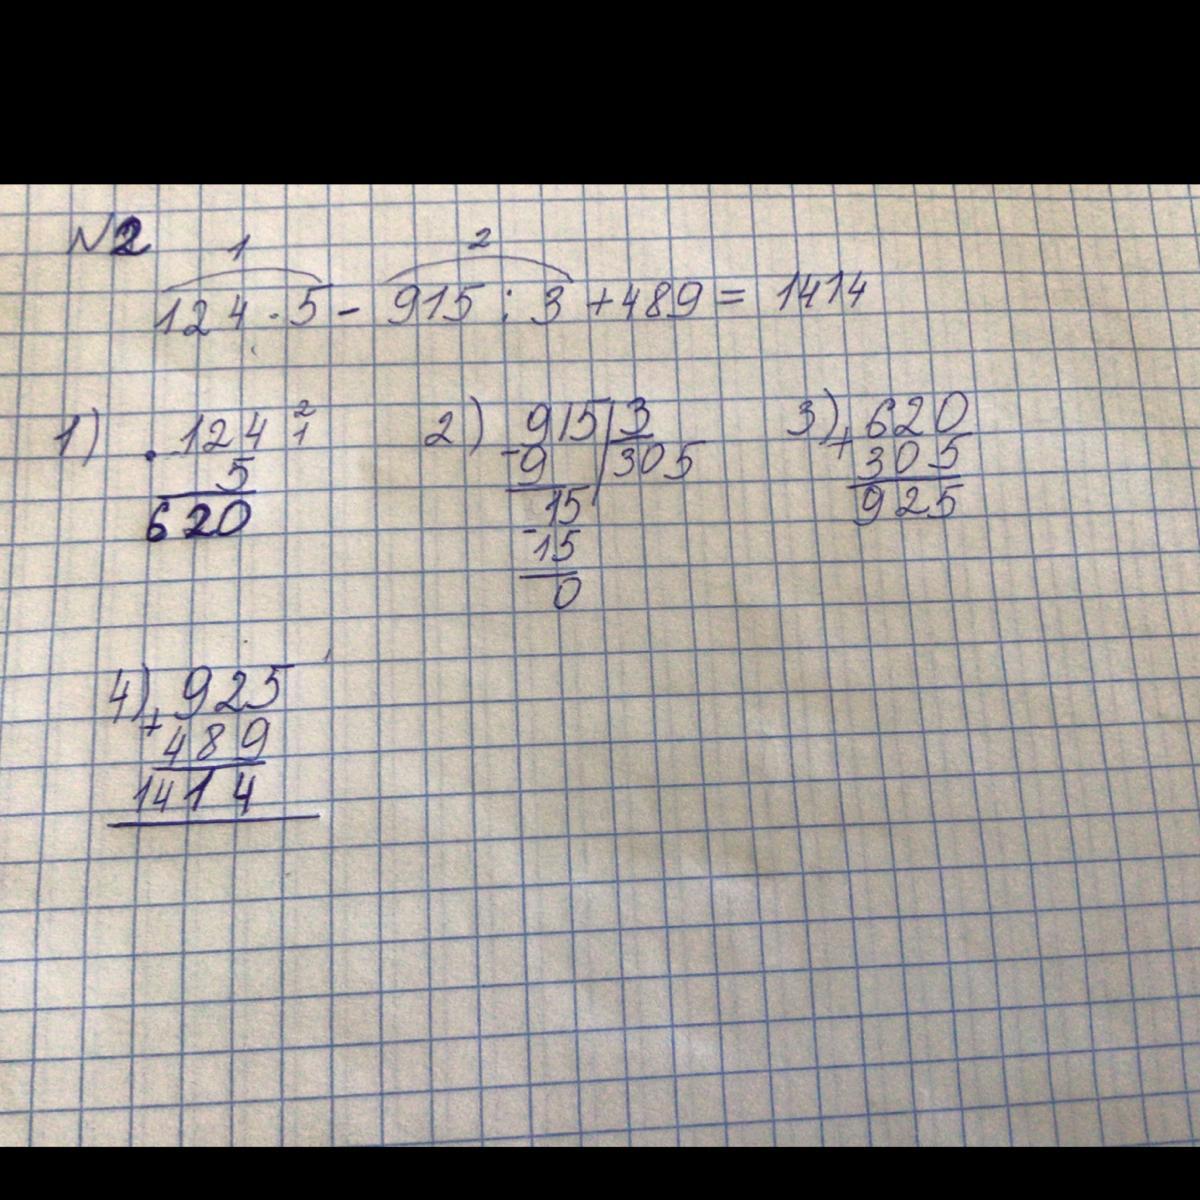 №2
1 2
124 · 5 - 915 : 3 + 489 = 1414
1) · 124 2 1
5
620
2) 915 | 3
- 9 | 305
15
- 15
0
3) + 620
305
925
4) + 925
489
1414